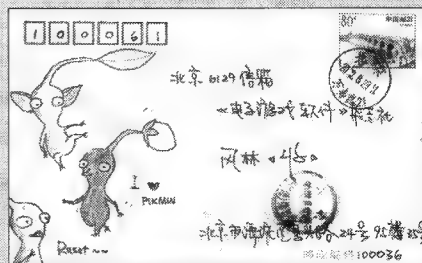 100061
80分
中国邮政
北京6129信箱
《电子游戏软件》杂志社
风林 收。
I ♥
PIKMIN
Reset~~
北京市海淀
24号95楼35号
100036